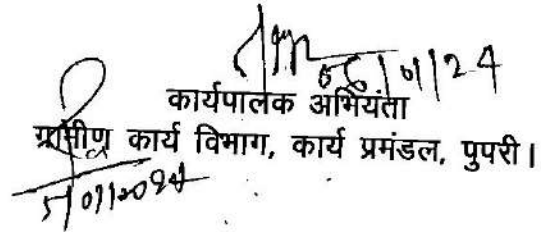 05/01/24
कार्यपालक अभियंता
ग्रामीण कार्य विभाग, कार्य प्रमंडल, पुपरी।
5/01/2024